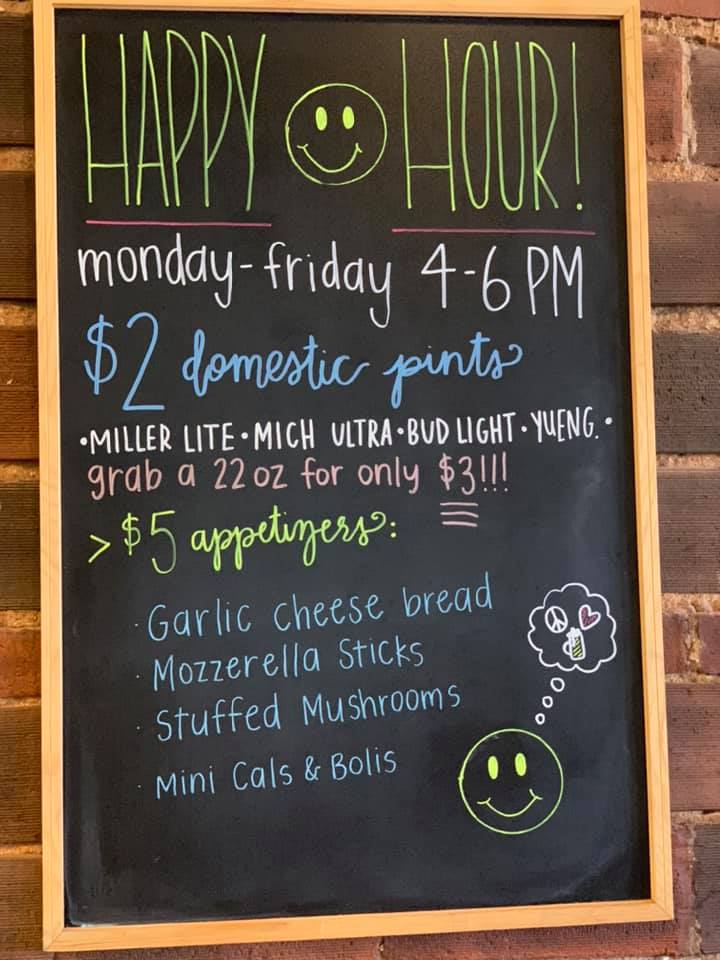 HAPPY HOUR!
monday-friday 4-6 PM
$2 domestic pints
•MILLER LITE•MICH ULTRA•BUD LIGHT•YUENG.•
grab a 22 oz for only $3!!!
>$5 appetizers:
· Garlic cheese bread
· Mozzerella Sticks
· Stuffed Mushrooms
· Mini Cals & Bolis